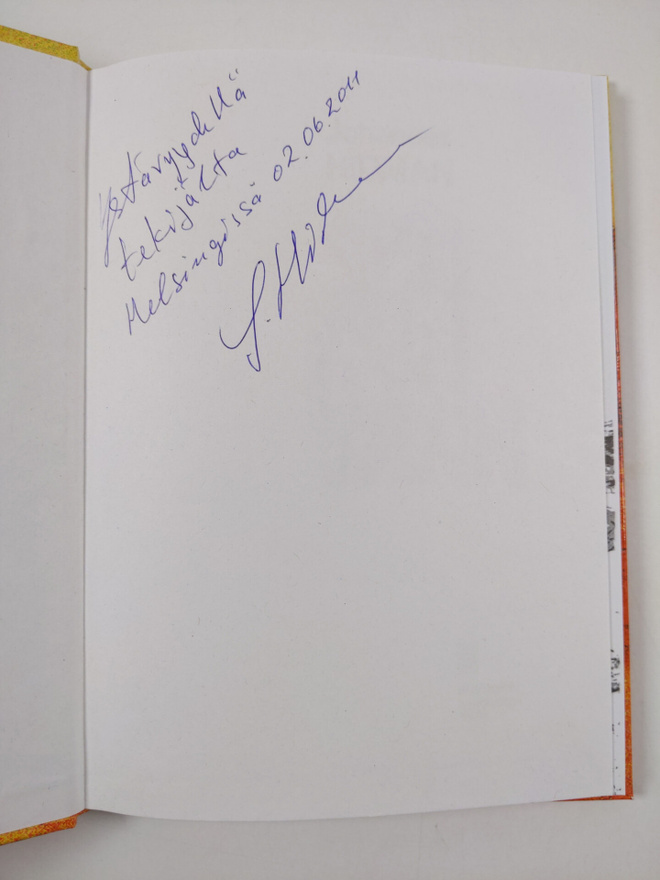 Ystävyydellä
tekijältä
Helsingissä 02.06.2011